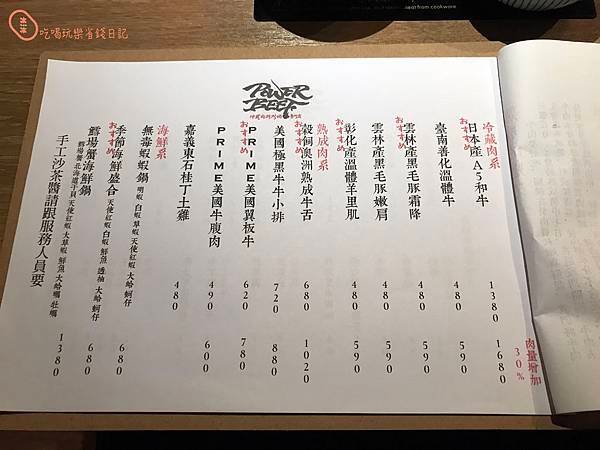 吃喝玩樂省錢日記
seat from cookware
POWER
BEEF
冷藏肉系
肉量增加
30%
おすすめ
日本產A5和牛 1380 1680
臺南善化溫體牛 480 590
おすすめ
雲林產黑毛豚霜降 480 590
雲林產黑毛豚嫩肩 480 590
おすすめ
彰化產溫體羊里肌 480 590
熟成肉系
おすすめ
穀飼澳洲熟成牛舌 680 1020
美國極黑牛牛小排 720 880
おすすめ
PRIME美國翼板牛 620 780
PRIME美國牛腹肉 490 600
嘉義東石桂丁土雞 480
海鮮系
無毒蝦蝦鍋 明蝦 白蝦 草蝦 天使紅蝦 大蛤 蚵仔 680
おすすめ
季節海鮮盛合 天使紅蝦 白蝦 鮮魚 透抽 大蛤 蚵仔 680
鱈場蟹海鮮鍋 鱈場蟹 北海道干貝 天使紅蝦 大草蝦 鮮魚 大蛤蠣 牡蠣 1380
手工沙茶醬請跟服務人員要